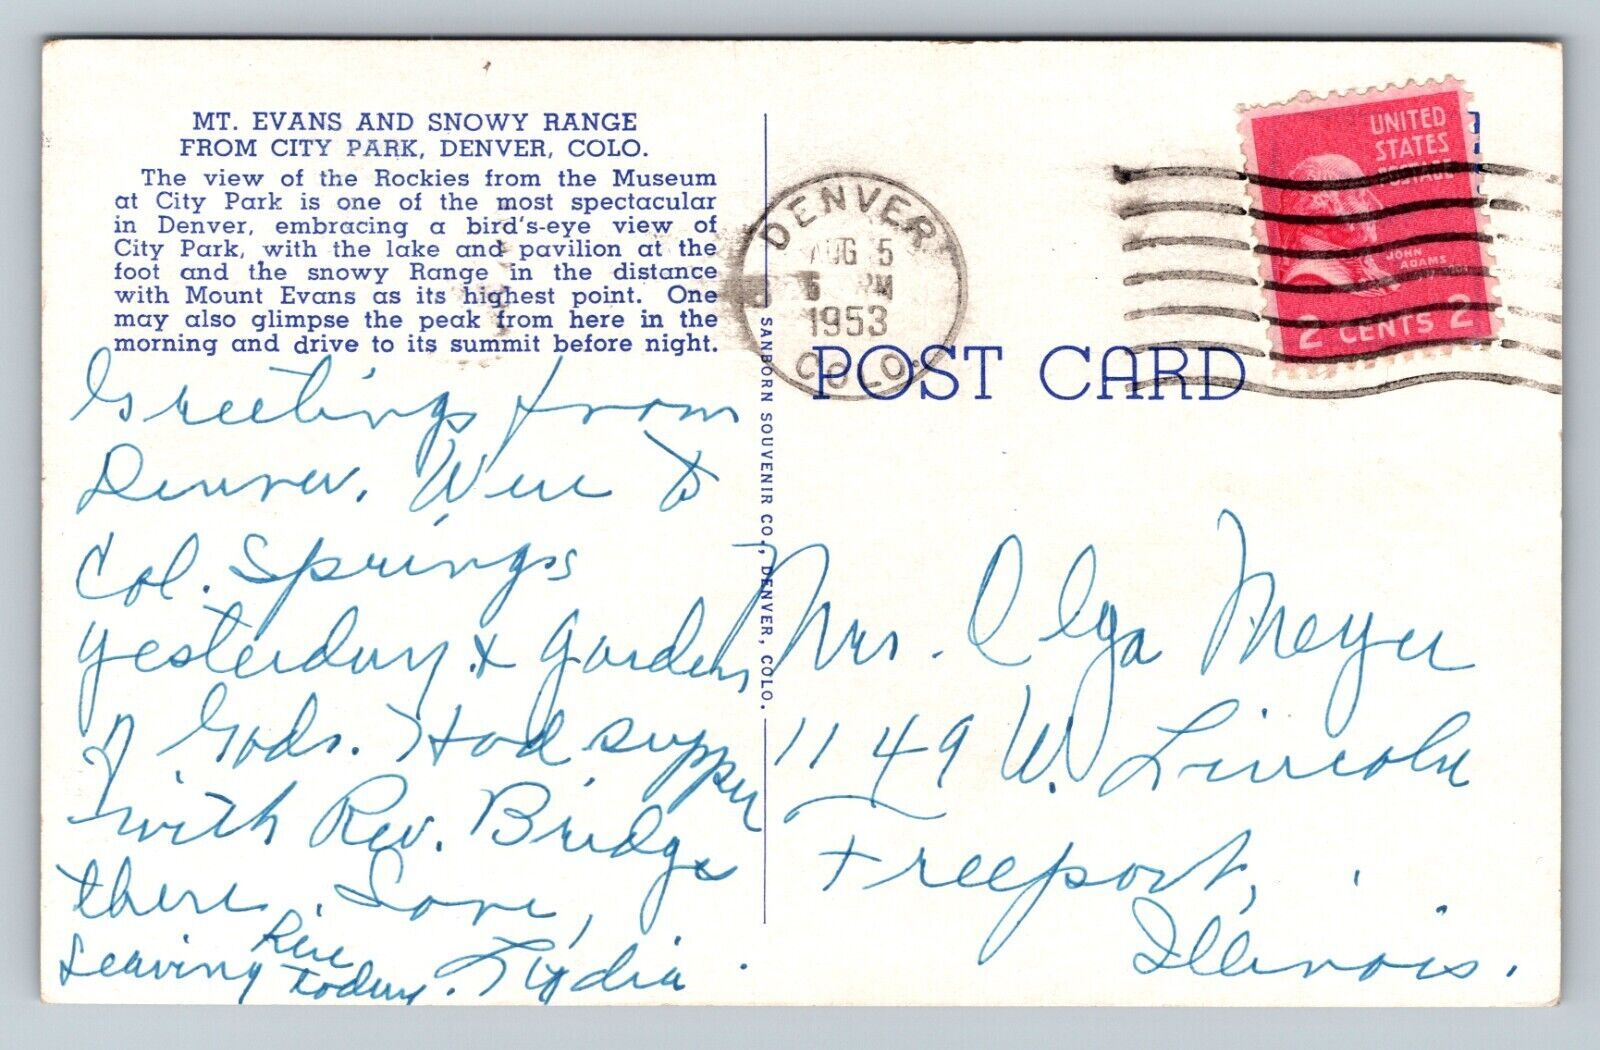 MT. EVANS AND SNOWY RANGE
FROM CITY PARK, DENVER, COLO.
The view of the Rockies from the Museum
at City Park is one of the most spectacular
in Denver, embracing a bird's-eye view of
City Park, with the lake and pavilion at the
foot and the snowy Range in the distance
with Mount Evans as its highest point. One
may also glimpse the peak from here in the
morning and drive to its summit before night.
Greetings from
Denver. Were to
Col. Springs
yesterday & Garden
of Gods. Had supper
with Rev. Bridge
there. Love,
Leaving
today. Lydia.
SANBORN SOUVENIR CO., DENVER, COLO.
DENVER
AUG 5
PM
1953
COLO.
POST CARD
UNITED
STATES
POSTAGE
JOHN
ADAMS
2 CENTS 2
Mrs. Olga Meyer
1149 W. Lincoln
Freeport,
Illinois.